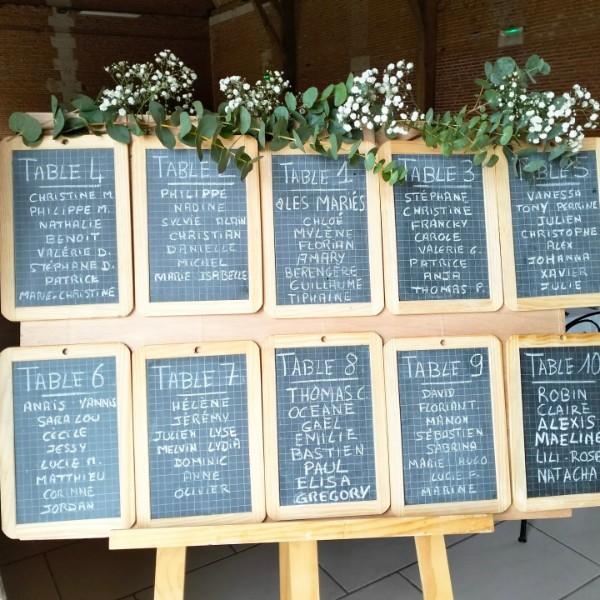 TABLE 4
CHRISTINE M
PHILIPPE M.
NATHALIE
BENOIT
VALÉRIE D.
STÉPHANE D.
PATRICE
MARIE-CHRISTINE
TABLE
PHILIPPE
NADINE
SYLVIE ALAIN
CHRISTIAN
DANIELLE
MICHEL
MARIE ISABELLE
TABLE 1
LES MARIÉS
CHLOÉ
MYLÈNE
FLORIAN
AMARY
BERENGÈRE
GUILLAUME
TIPHAINE
TABLE 3
STÉPHANE
CHRISTINE
FRANCKY
CAROLE
VALÉRIE G.
PATRICE
ANJA
THOMAS P.
TABLE 5
VANESSA
TONY PERRINE
JULIEN
CHRISTOPHE
ALEX
JOHANNA
XAVIER
JULIE
TABLE 6
ANAÏS YANNIS
SARA LOU
CÉCILE
JESSY
LUCIE M.
MATTHIEU
CORINNE
JORDAN
TABLE 7
HÉLÈNE
JÉRÉMY
JULIEN LYSE
MELVIN LYDIA
DOMINIC
ANNE
OLIVIER
TABLE 8
THOMAS C
OCEANE
GAËL
EMILIE
BASTIEN
PAUL
ELISA
GREGORY
TABLE 9
DAVID
FLORIANT
MANON
SÉBASTIEN
SABRINA
MARIE HUGO
LUCIE
MARINE
TABLE 10
ROBIN
CLAIRE
ALEXIS
MAELINE
LILI-ROSE
NATACHA